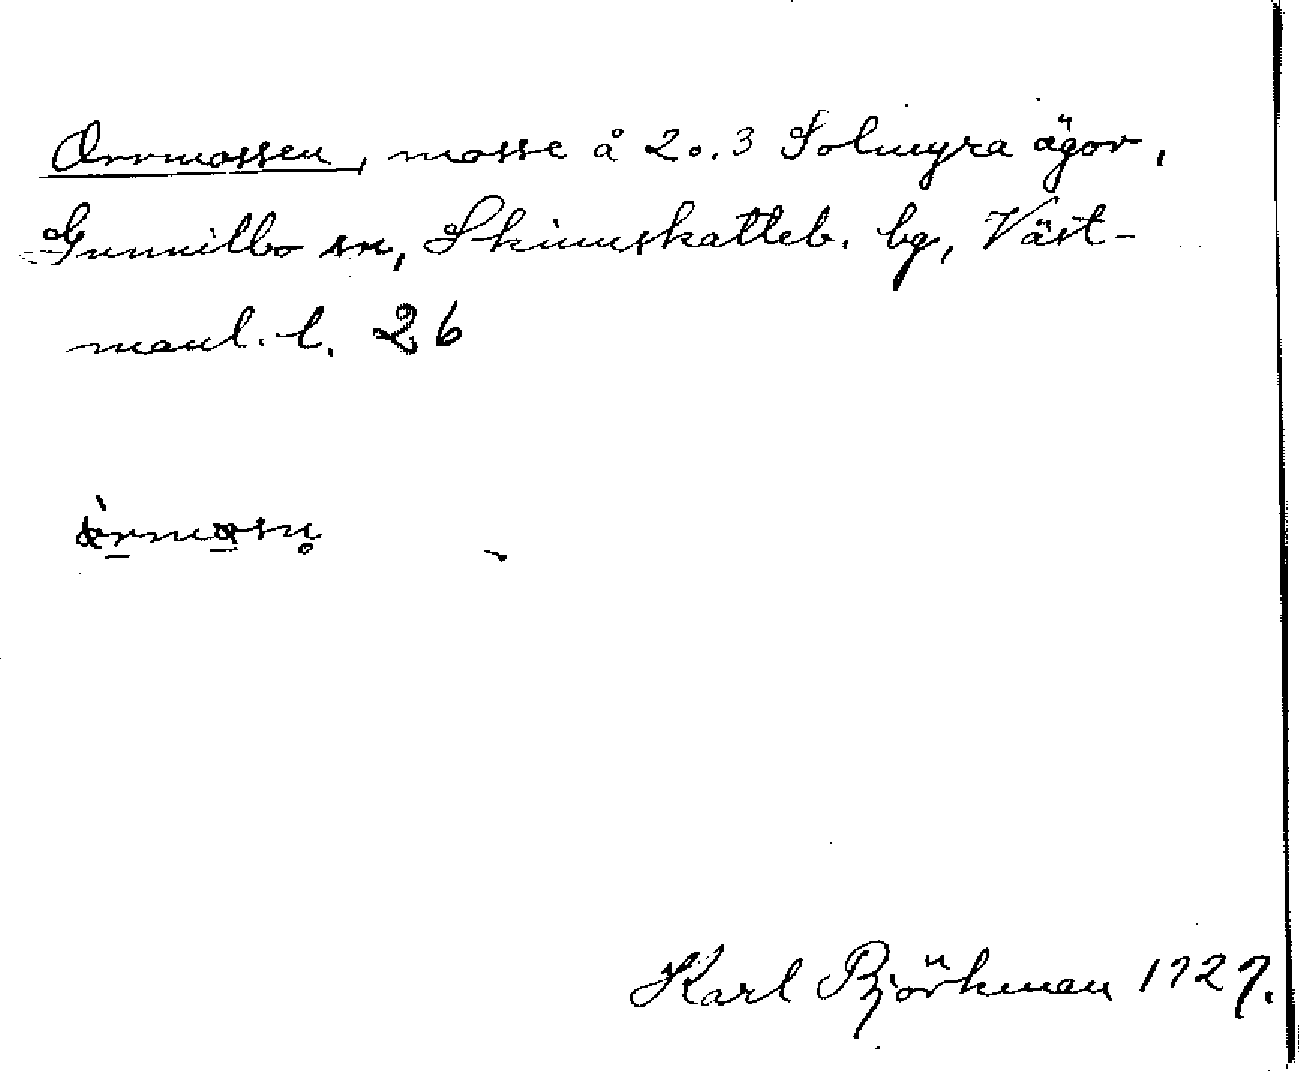 Orrmossen, mosse å 2 o. 3 Solmyra ägor,
Gunnilbo sn, Skinnskatteb. bg, Väst-
manl. l. 26
Karl Björkman 1927.